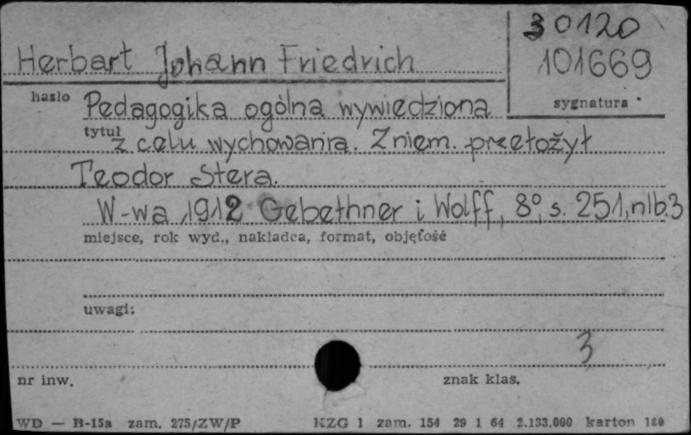 30120
Herbart Johann Friedrich 101669
hasło Pedagogika ogólna wywiedziona sygnatura
tytuł z celu wychowania. Z niem. przełożył
Teodor Stera.
W-wa, 1912 Gebethner i Wolff, 8°, s. 251, nlb. 3
miejsce, rok wyd., nakładca, format, objętość
uwagi:
3
nr inw. znak klas.
WD — B-15a zam. 275/ZW/P KZG 1 zam. 154 29 1 64 2.133.000 karton